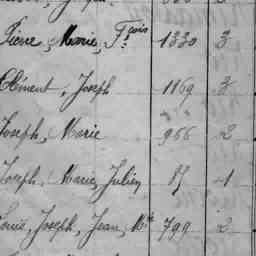 Pierre, Marie, Fçois 1330 3
Clément, Joseph 1169 3
Joseph, Marie 966 2
Joseph, Marie, Julien 1
Louis, Joseph, Jean, Mie 799 2